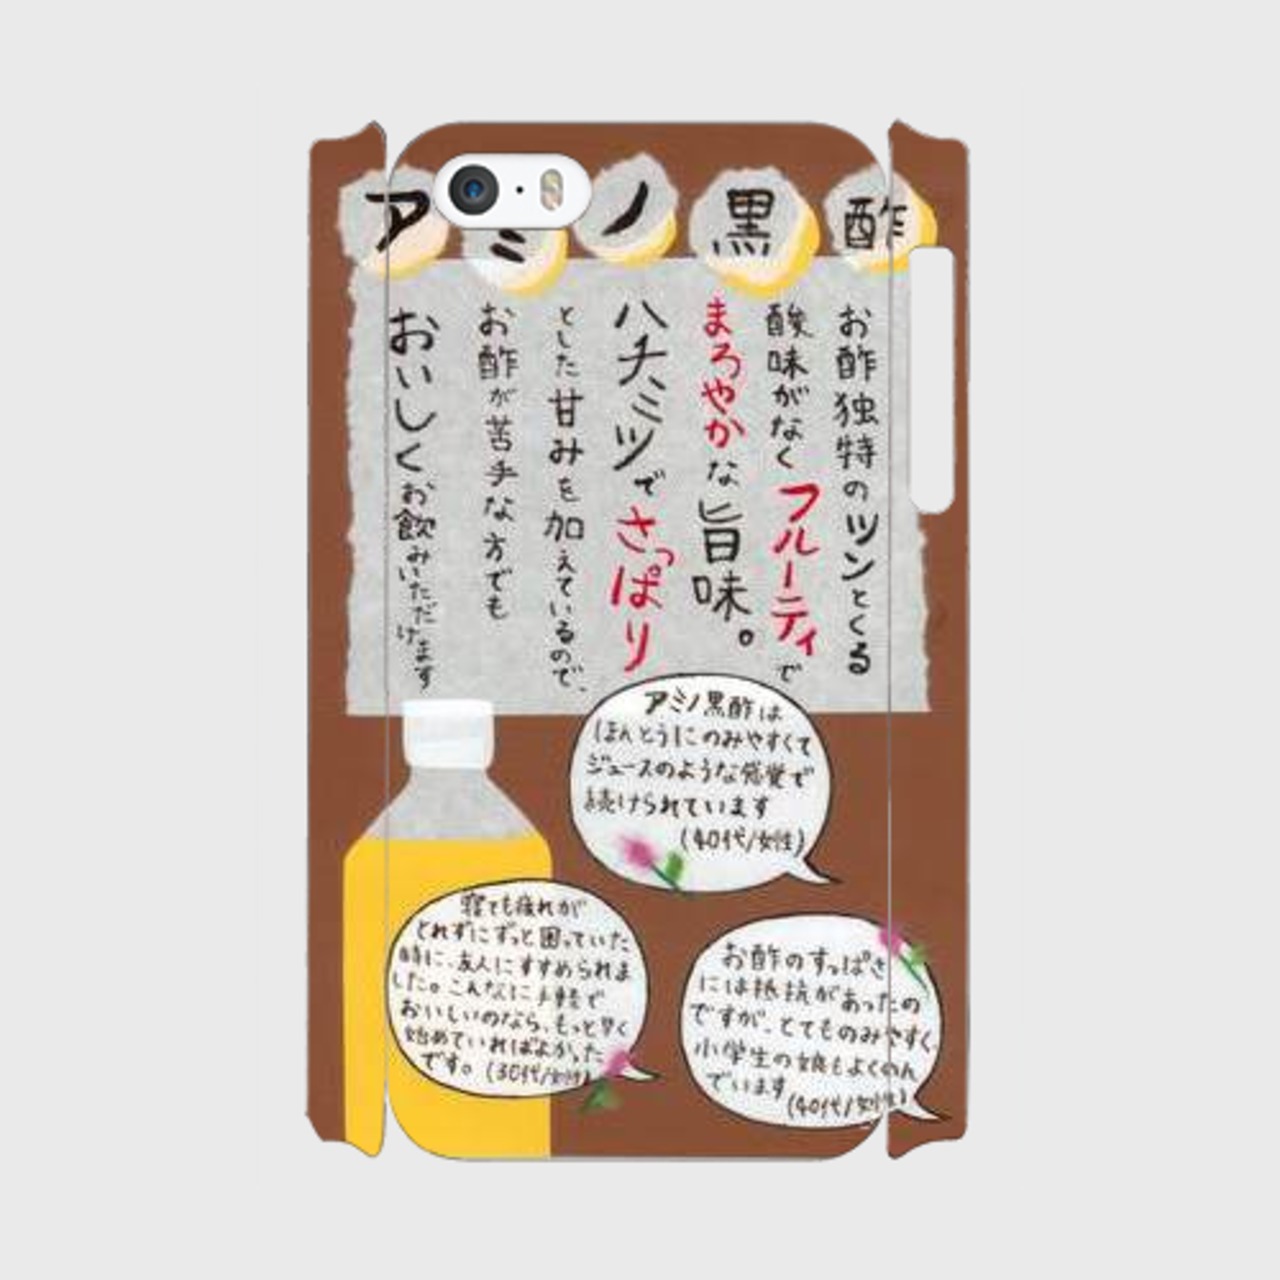 アミノ黒酢
お酢独特のツンとくる
酸味がなくフルーティで
まろやかな旨味。
ハチミツでさっぱり
とした甘みを加えているので、
お酢が苦手な方でも
おいしくお飲みいただけます
アミノ黒酢は
ほんとうにのみやすくて
ジュースのような感覚で
続けられています
(40代/女性)
寝ても疲れが
とれずにずっと困っていた
時に、友人にすすめられま
した。こんなに手軽で
おいしいのなら、もっと早く
始めていればよかった
です。(30代/女性)
お酢のすっぱさ
には抵抗があったの
ですが、とてものみやすく、
小学生の娘もよくのん
でいます
(40代/女性)